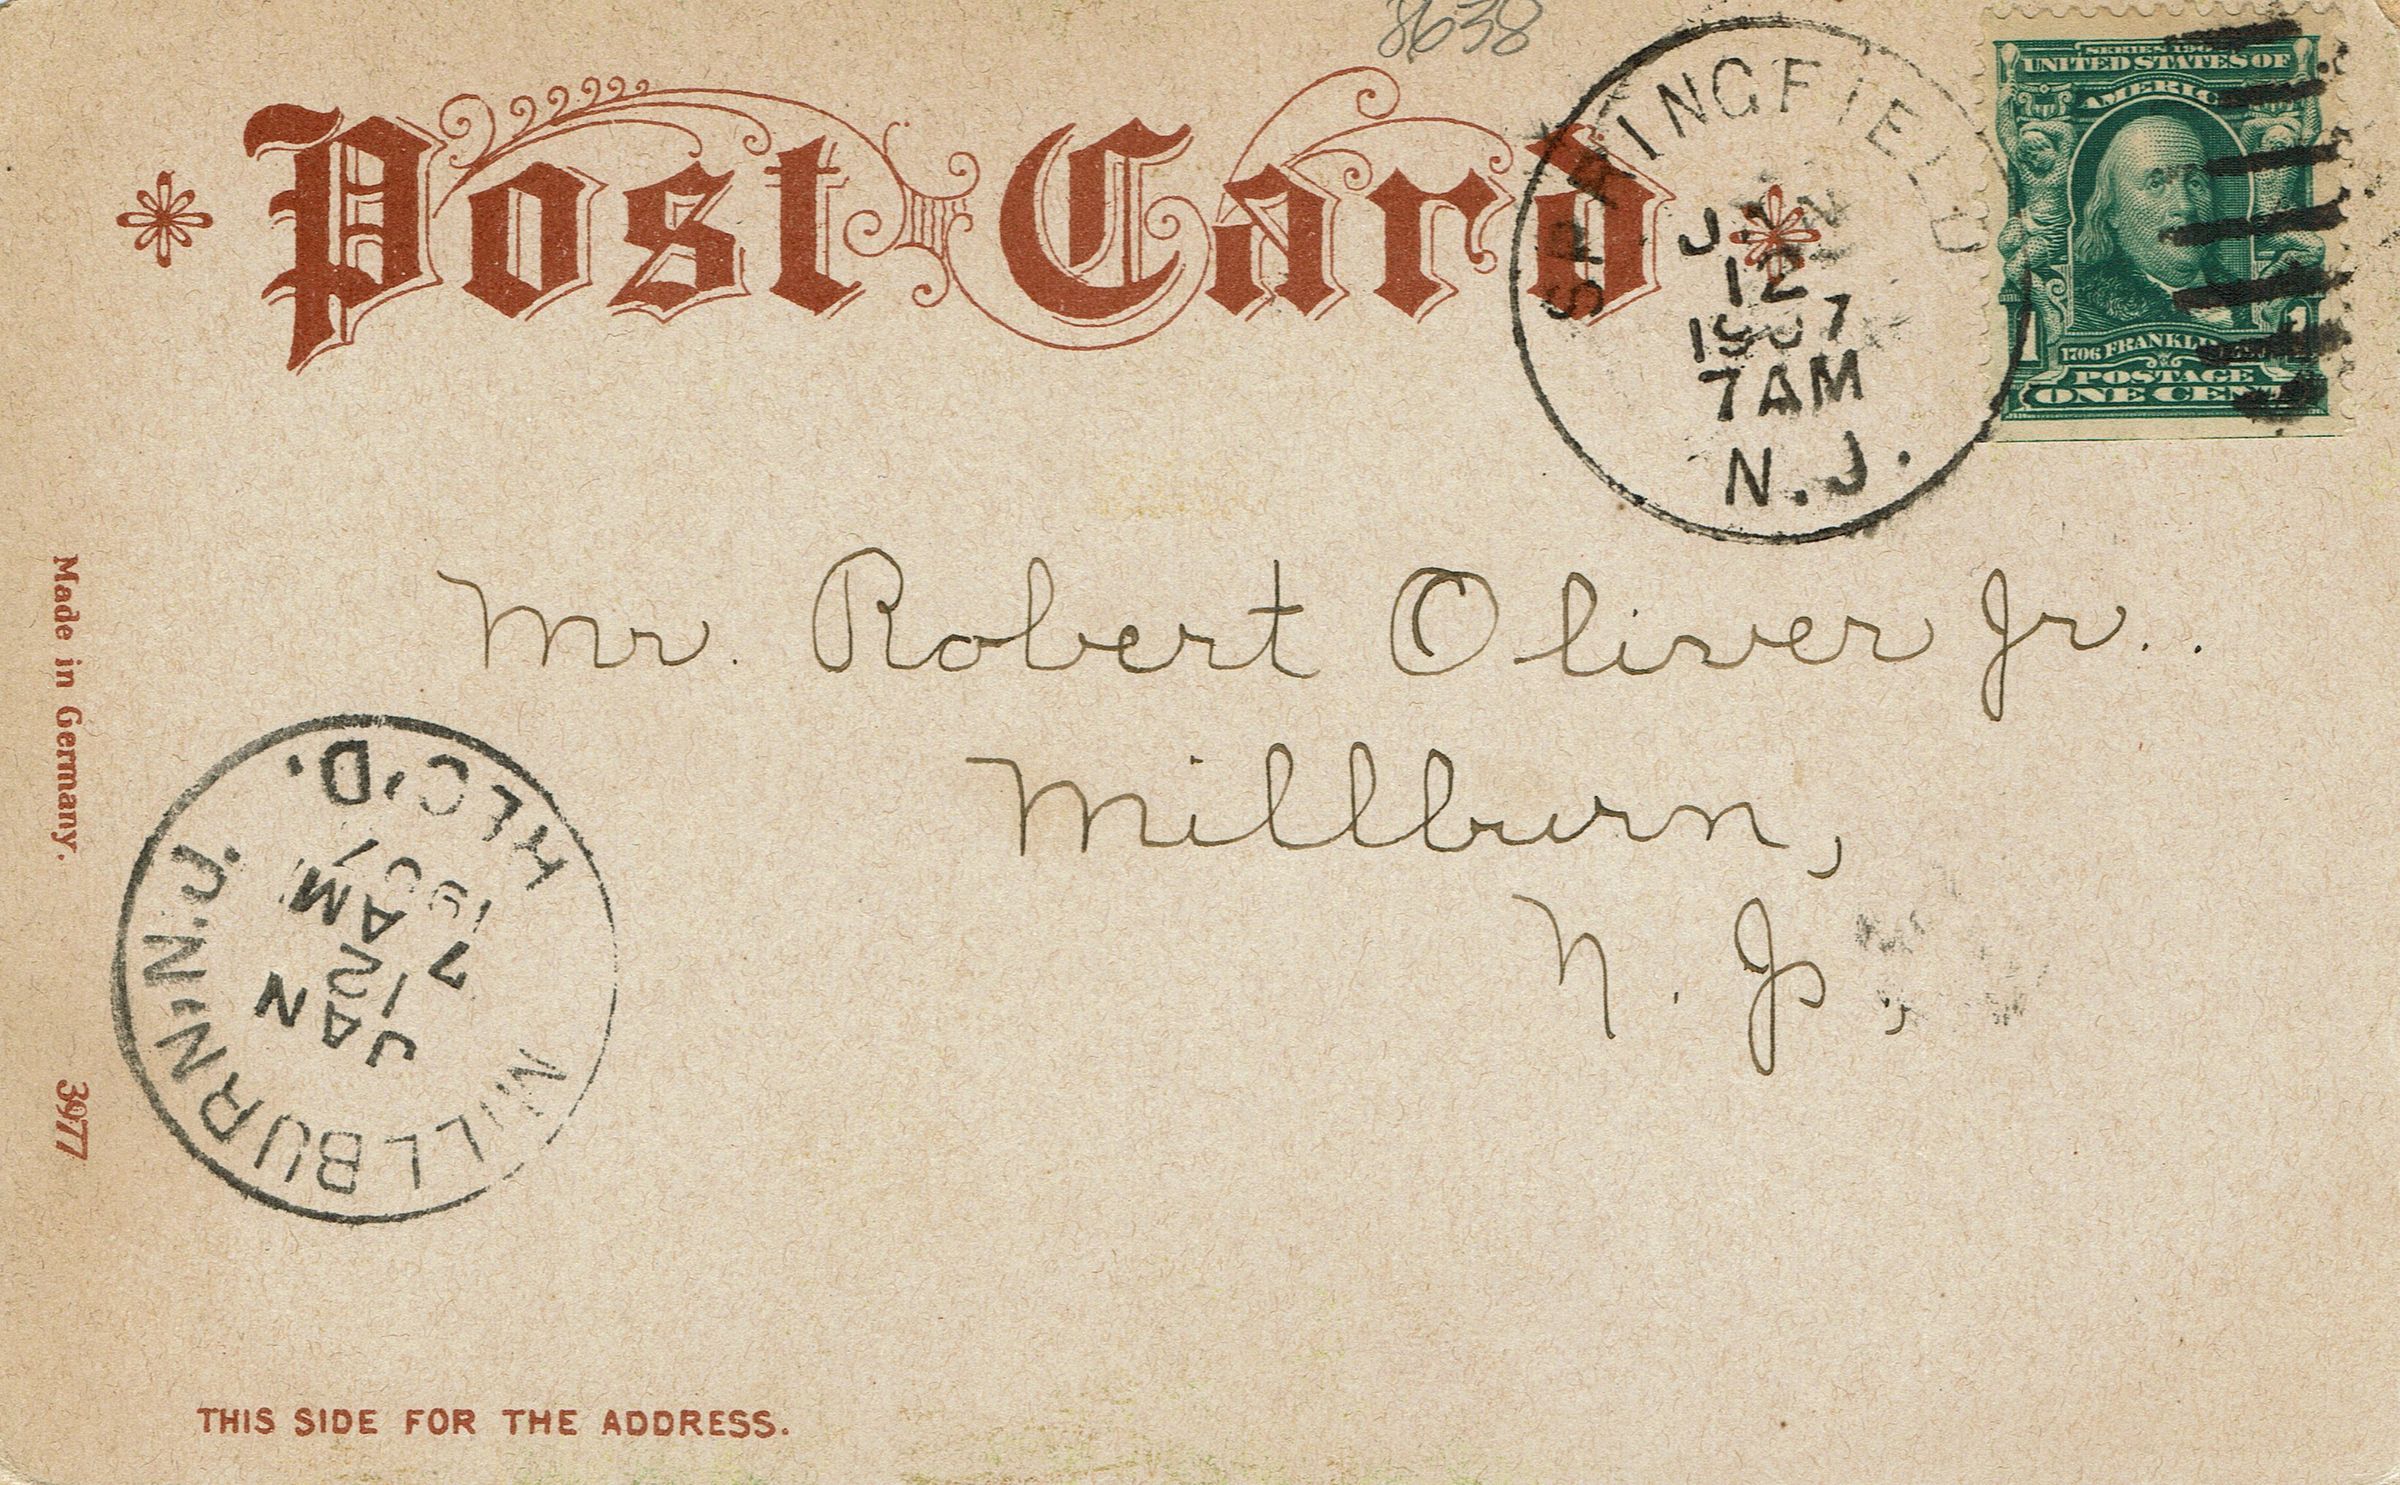 8638
Post Card
SPRINGFIELD
JAN
12
1907
7 AM
N.J.
SERIES 1902
UNITED STATES OF
AMERICA
1706 FRANKLIN
POSTAGE
ONE CENT
1 1
Mr. Robert Oliver Jr..
Millburn,
N. J.,
Made in Germany. 3977
MILLBURN, N.J.
JAN
12
7 AM
190
REC'D.
THIS SIDE FOR THE ADDRESS.